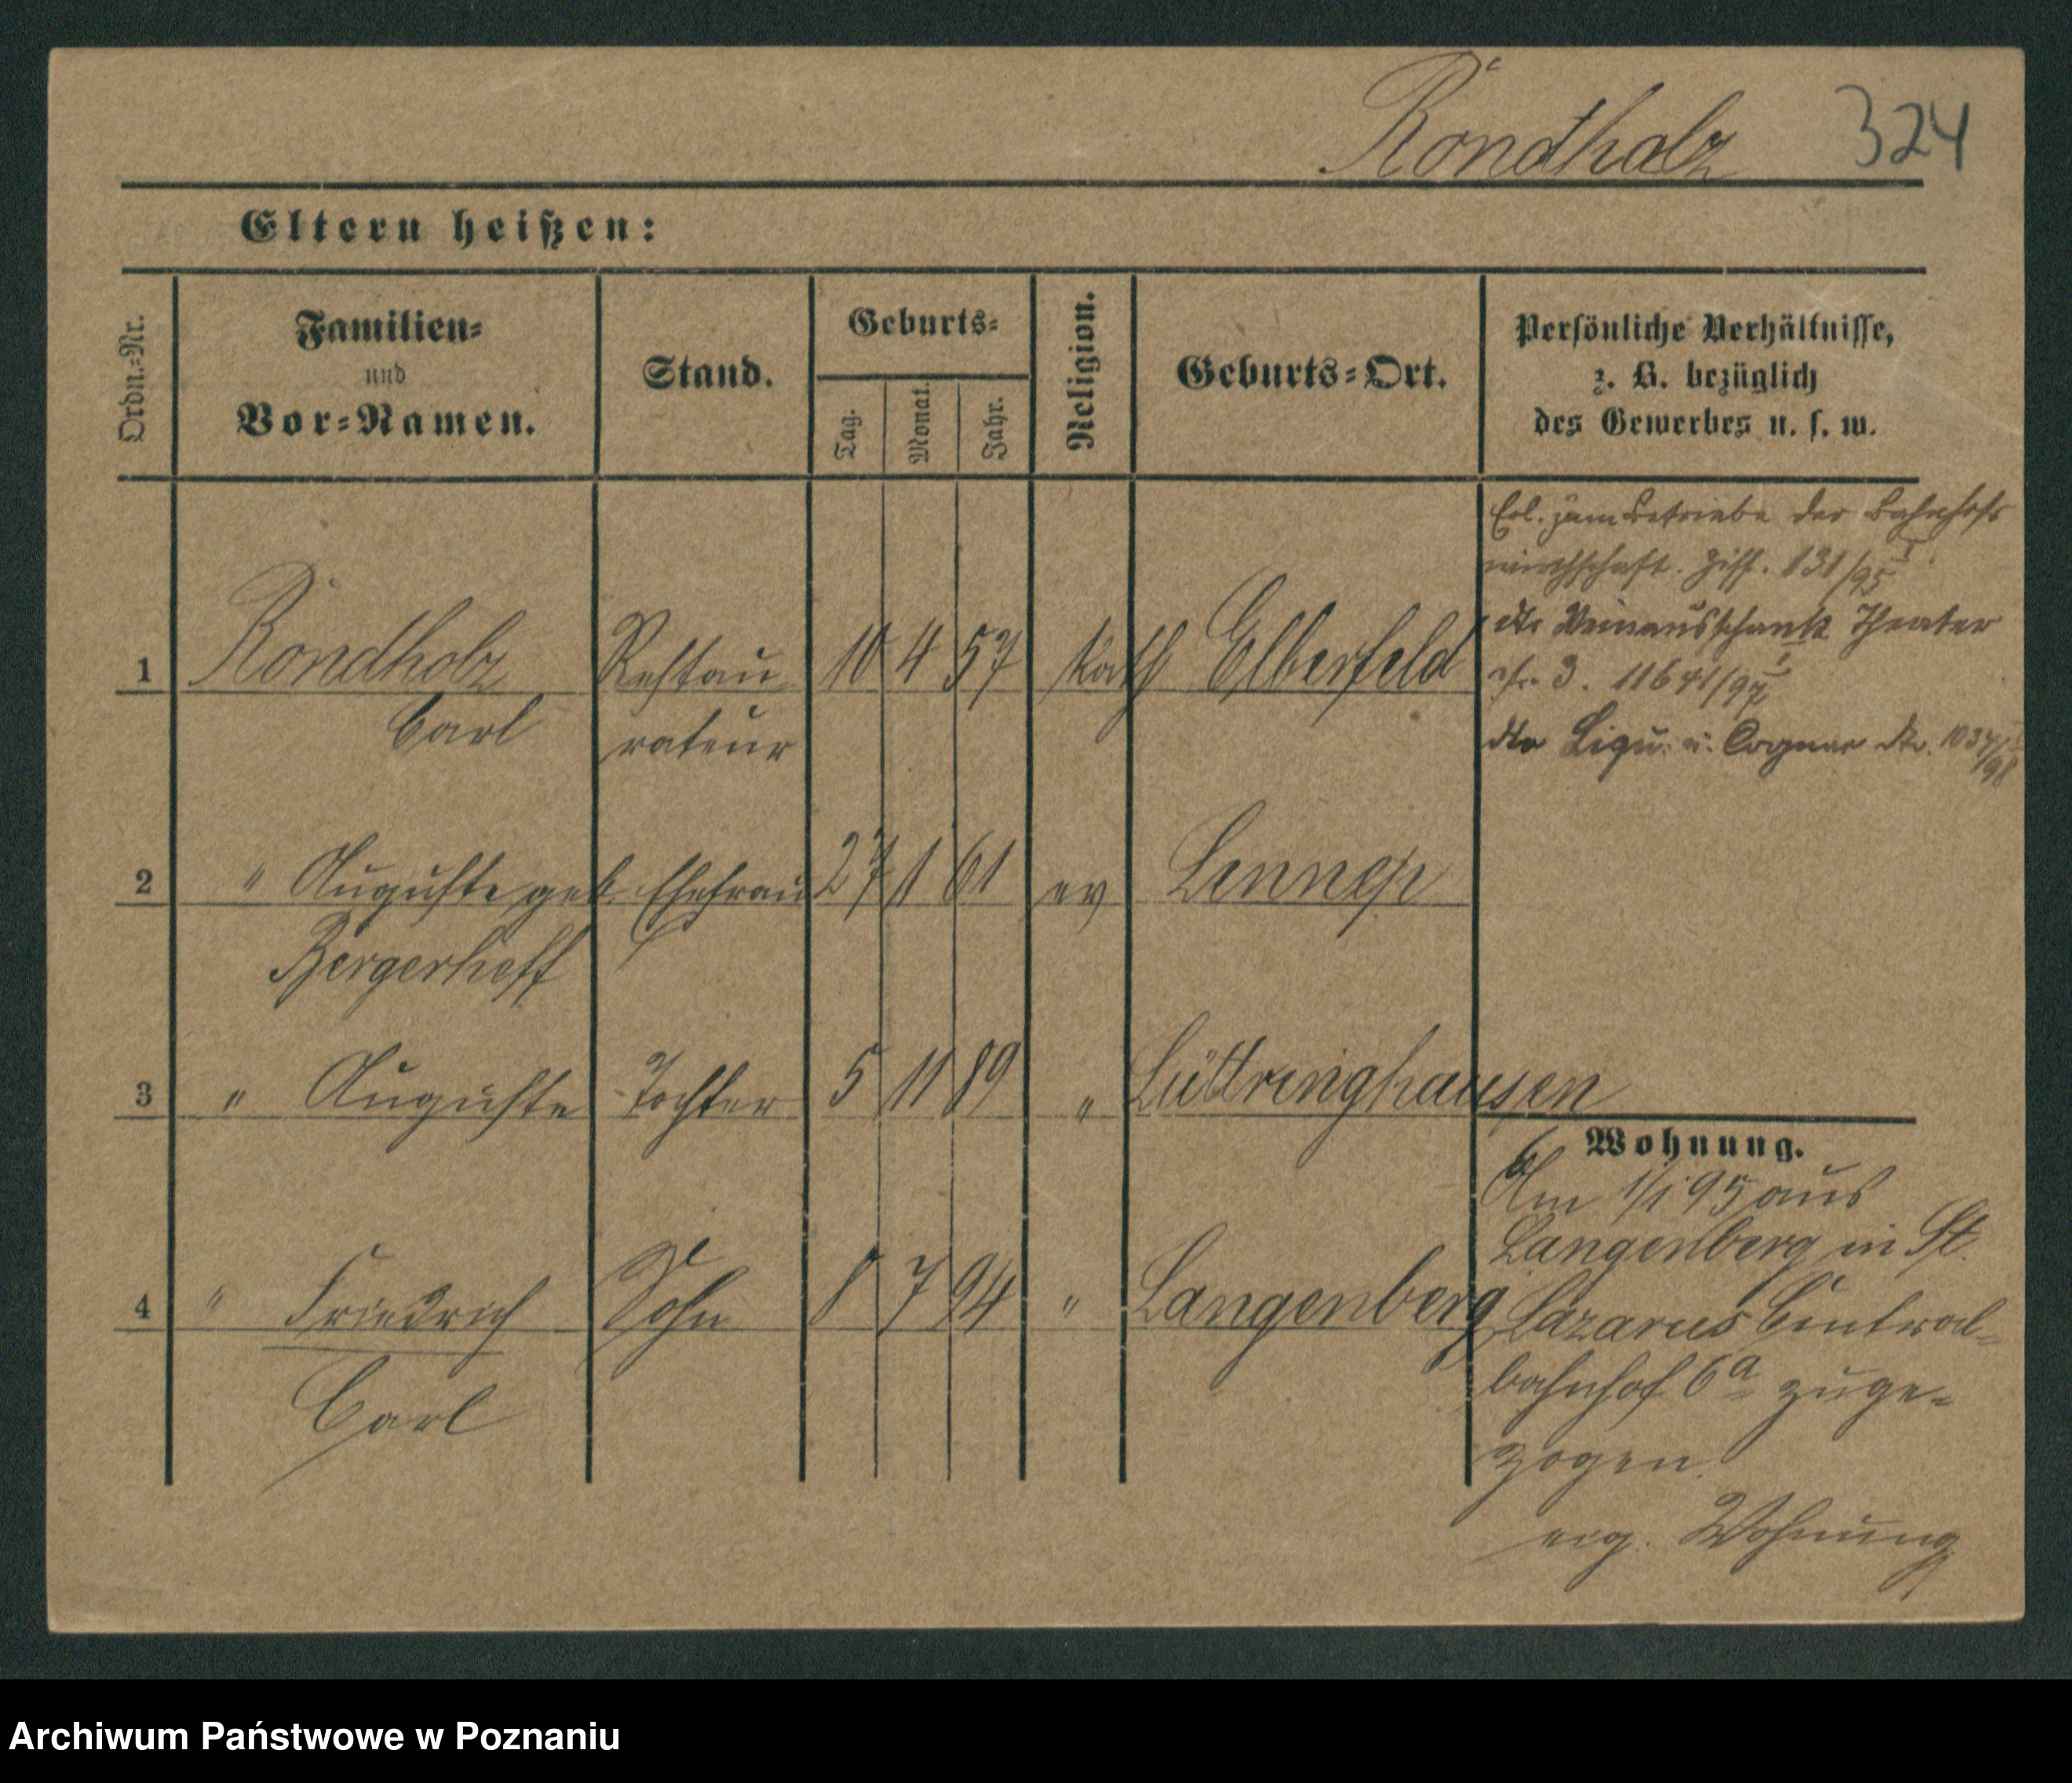 Rondholz 324
Eltern heißen:
Ordn.=Nr.
Familien=
und
Vor=Namen.
Stand.
Geburts=
Tag.
Monat.
Jahr.
Religion.
Geburts=Ort.
Persönliche Verhältnisse,
z. B. bezüglich
des Gewerbes u. s. w.
Erl. zum Betriebe der Bahnhofs
wirthschaft. 131/95
dto Weinausschank Theater
Nr. 3. 11641/97
dto Liqu. u. Cognac 1034/98
1 Rondholz Restau 10 4 57 kath Elberfeld
Carl rateur
2 " Auguste geb. Ehefrau 27 1 61 ev Lennep
Bergerhoff
3 " Auguste Tochter 5 11 89 " Lüttringhausen
4 " Friedrich Sohn 8 7 94 " Langenberg
Carl
Wohnung.
Am 1/1 95 aus
Langenberg in St.
Lazarus Central=
bahnhof 6a zuge=
zogen.
eig. Wohnung
Archiwum Państwowe w Poznaniu